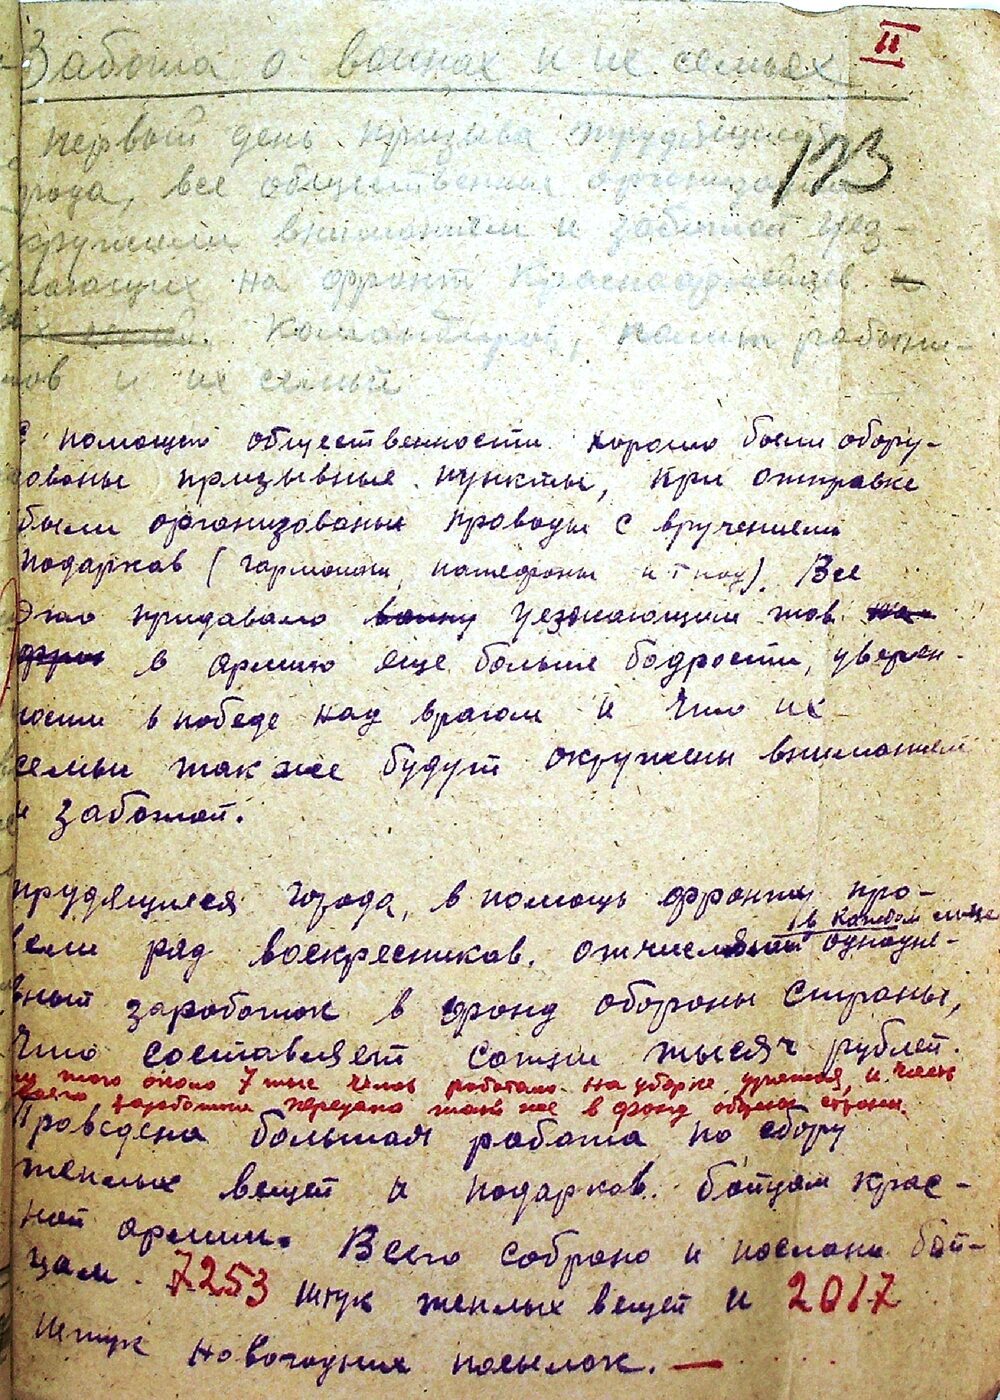 II
Забота о воинах и их семьях
173
первый день призыва трудящиеся
рода, все общественные организации
окружили вниманием и заботой уез-
жающих на фронт Красноармейцев и
Командиров, полит работни-
ков и их семьи
С помощью общественности хорошо были обору-
дованы призывные пункты, при отправке
были организованы проводы с вручением
подарков (гармошки, патефоны и т под). Все
Это придавало воину уезжающим тов на
фрон в армию еще больше бодрости, уверен-
ности в победе над врагом и что их
семьи так же будут окружены вниманием
и заботой.
трудящиеся города, в помощь фронту про-
в каждом месяце
вели ряд воскресников, отчисляют однодне-
вный заработок в фонд обороны Страны,
Что составляет сотни тысяч рублей.
того около 7 тыс челов работало на уборке урожая, и часть
своего заработка передано так же в фонд обороны страны.
Проведена большая работа по сбору
теплых вещей и подарков бойцам Крас-
ной армии. Всего собрано и послано бой-
цам 7253 штук теплых вещей и 2017
штук новогодних посылок. —